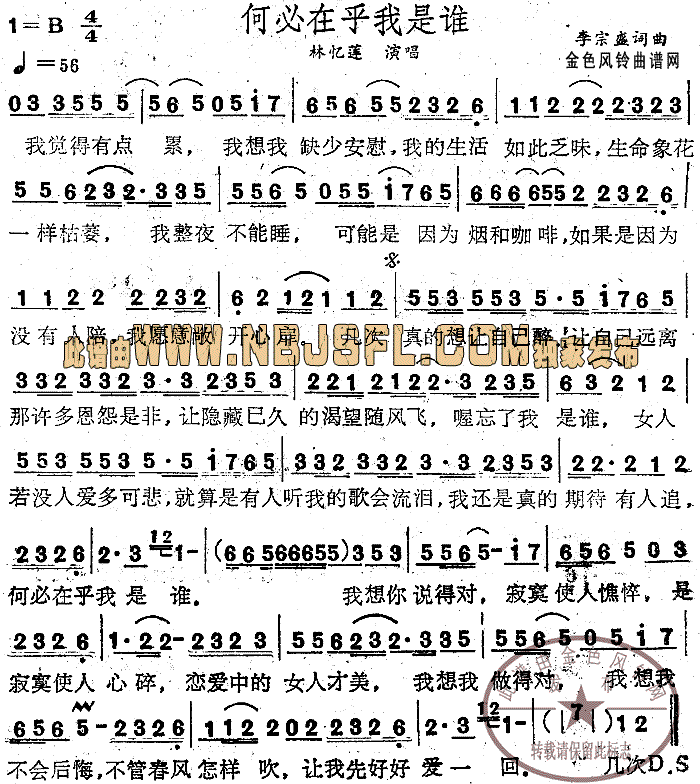 何必在乎我是谁
1=B 4/4
林忆莲 演唱
李宗盛词曲
♩=56
金色风铃曲谱网
03 3555 5 | 56 5 05i7 | 656 5 522326 | 112 22 22323 |
我觉得有点 累， 我想我 缺少安慰，我的生活 如此乏味，生命象花
5 5 6 232 2·335 | 55 6 5 055 i765 | 666 (6655) 52 2326 |
一样枯萎， 我整夜 不能睡， 可能是 因为 烟和咖啡，如果是因为
1 1 22 2 2232 | 6 2 12121 112 | 553 5553 5·5 i765 |
没有人陪，我愿意敞 开心扉。几次 真的想让自己醉，让自己远离
此谱由WWW.NBJSFL.COM独家发布
332 3332 3·3 2353 | 221 2122122·3 235 | 63 2 1212 |
那许多恩怨是非，让隐藏已久 的渴望随风飞，喔忘了我 是谁，女人
553 5553 5·5 i765 | 332 332 3·3 2353 | 22·212 |
若没人爱多可悲，就算是有人听我的歌会流泪，我还是真的 期待 有人追，
2326 | 2·3 12 1- | (66566655) 353 | 5565-i7 | 656 5 03 |
何必在乎我 是 谁。 我想你 说得对， 寂寞使人憔悴，是
2326 | 1·22-2323 | 55 6 2322·335 | 556 5 05i7 |
寂寞使人 心碎，恋爱中的 女人才美， 我想我 做得对， 我想我
656 5-2326 | 112 202 2326 | 2·3 12 1- | (7) 12 ‖
不会后悔，不管春风怎样 吹，让我先好好 爱一 回。 几次D.S
此谱由金色风铃网
转载请保留此标志